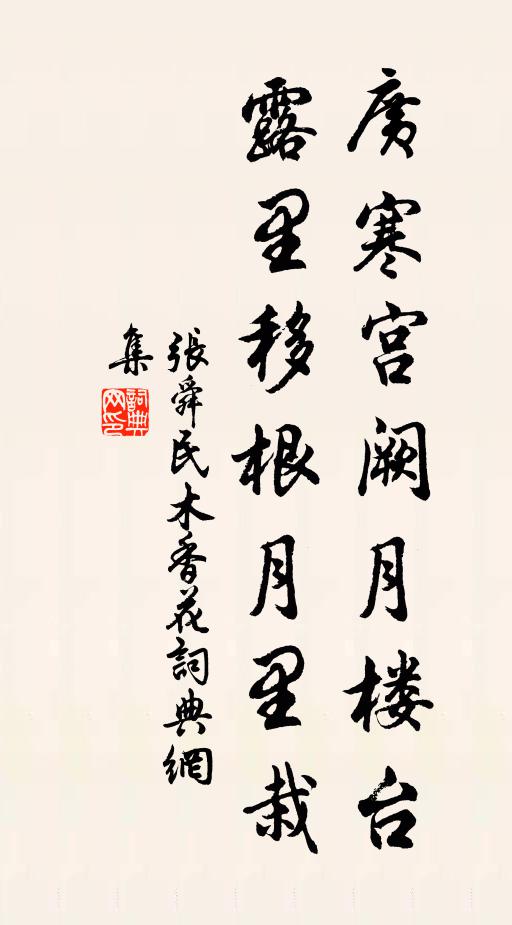 廣寒宫阙月楼台
露里移根月里栽
張舜民木香花詞典網
集
詞典
网印